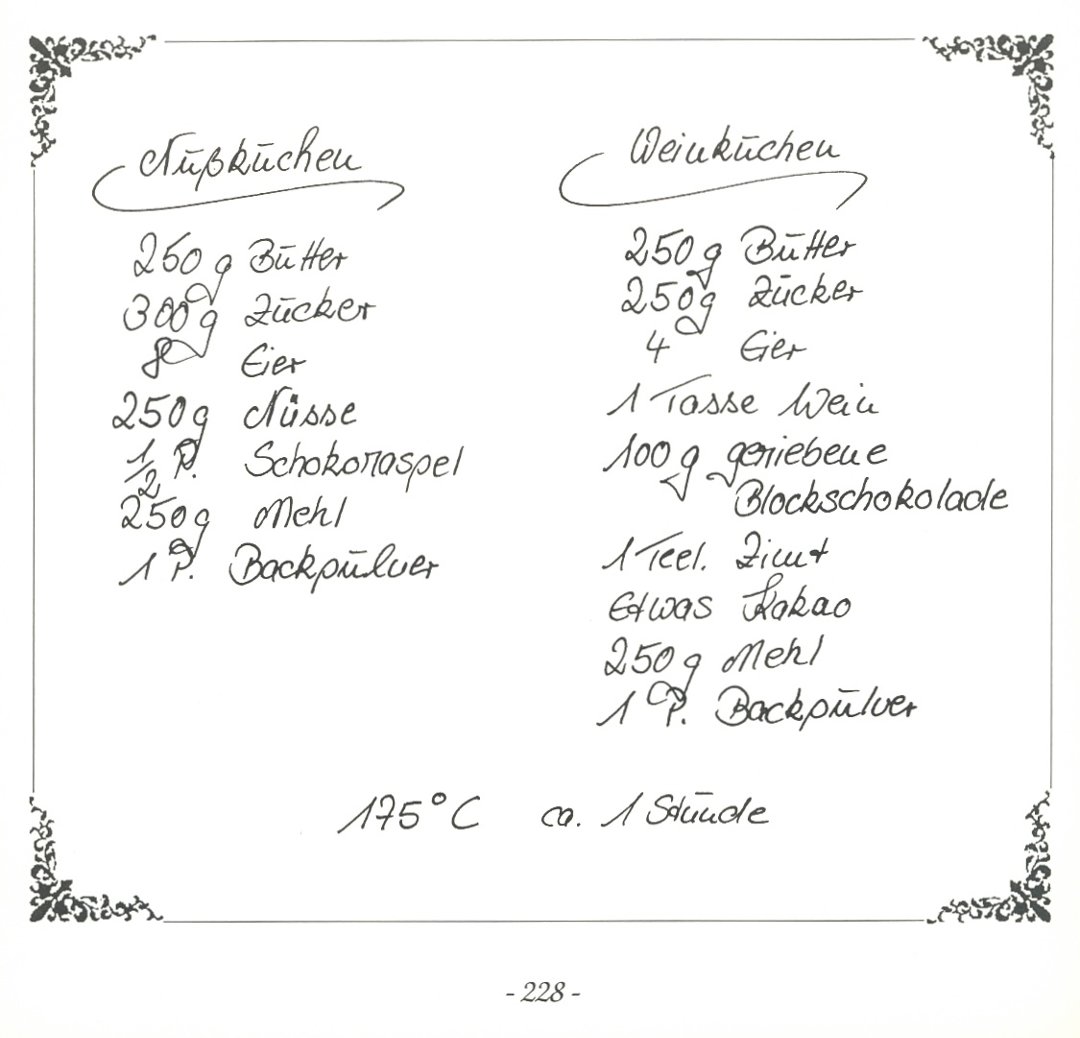 Nußkuchen
250 g Butter
300 g Zucker
8 Eier
250 g Nüsse
1/2 P. Schokoraspel
250 g Mehl
1 P. Backpulver
Weinkuchen
250 g Butter
250 g Zucker
4 Eier
1 Tasse Wein
100 g geriebene
Blockschokolade
1 Teel. Zimt
Etwas Kakao
250 g Mehl
1 P. Backpulver
175°C ca. 1 Stunde
- 228 -